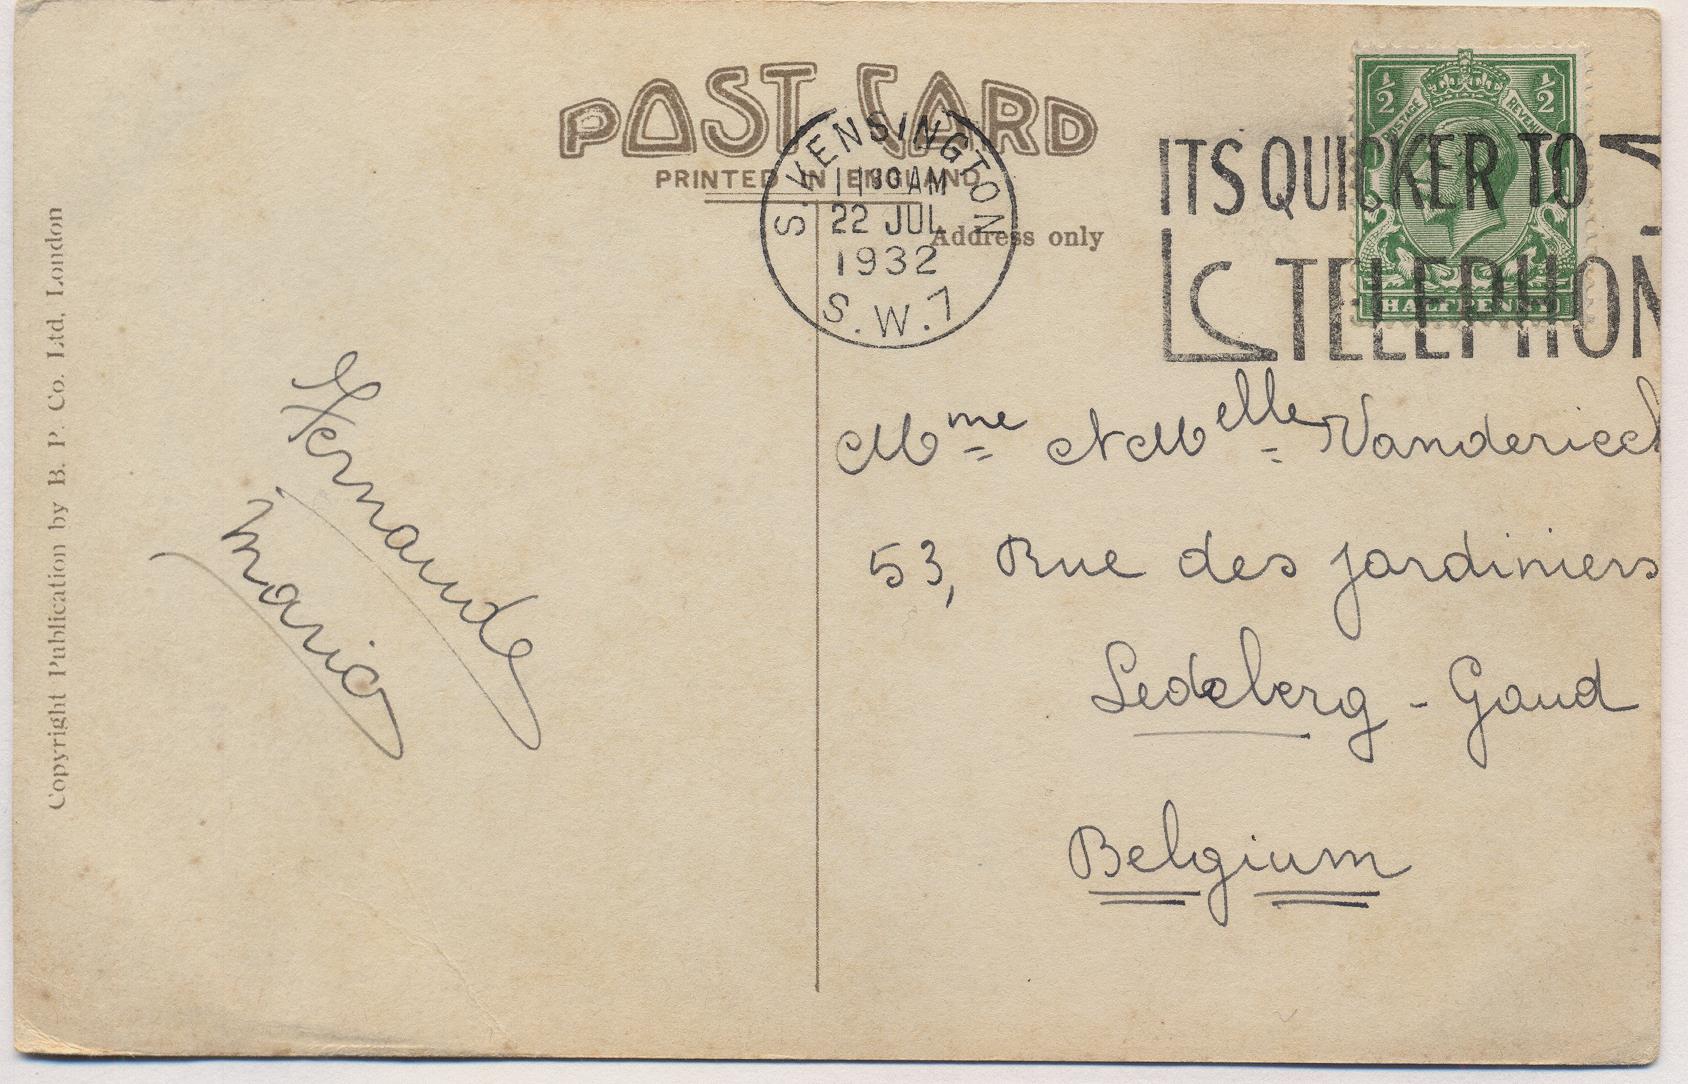 POST CARD
PRINTED IN ENGLAND
Address only
S. KENSINGTON
11 30 AM
22 JUL
1932
S.W.7
ITS QUICKER TO
TELEPHON
½ ½
POSTAGE REVENUE
HALFPENNY
Mme & Melle
53, Rue des jardiniers
Ledeberg - Gand
Belgium
Fernande
Maria
Copyright Publication by B. P. Co. Ltd, London